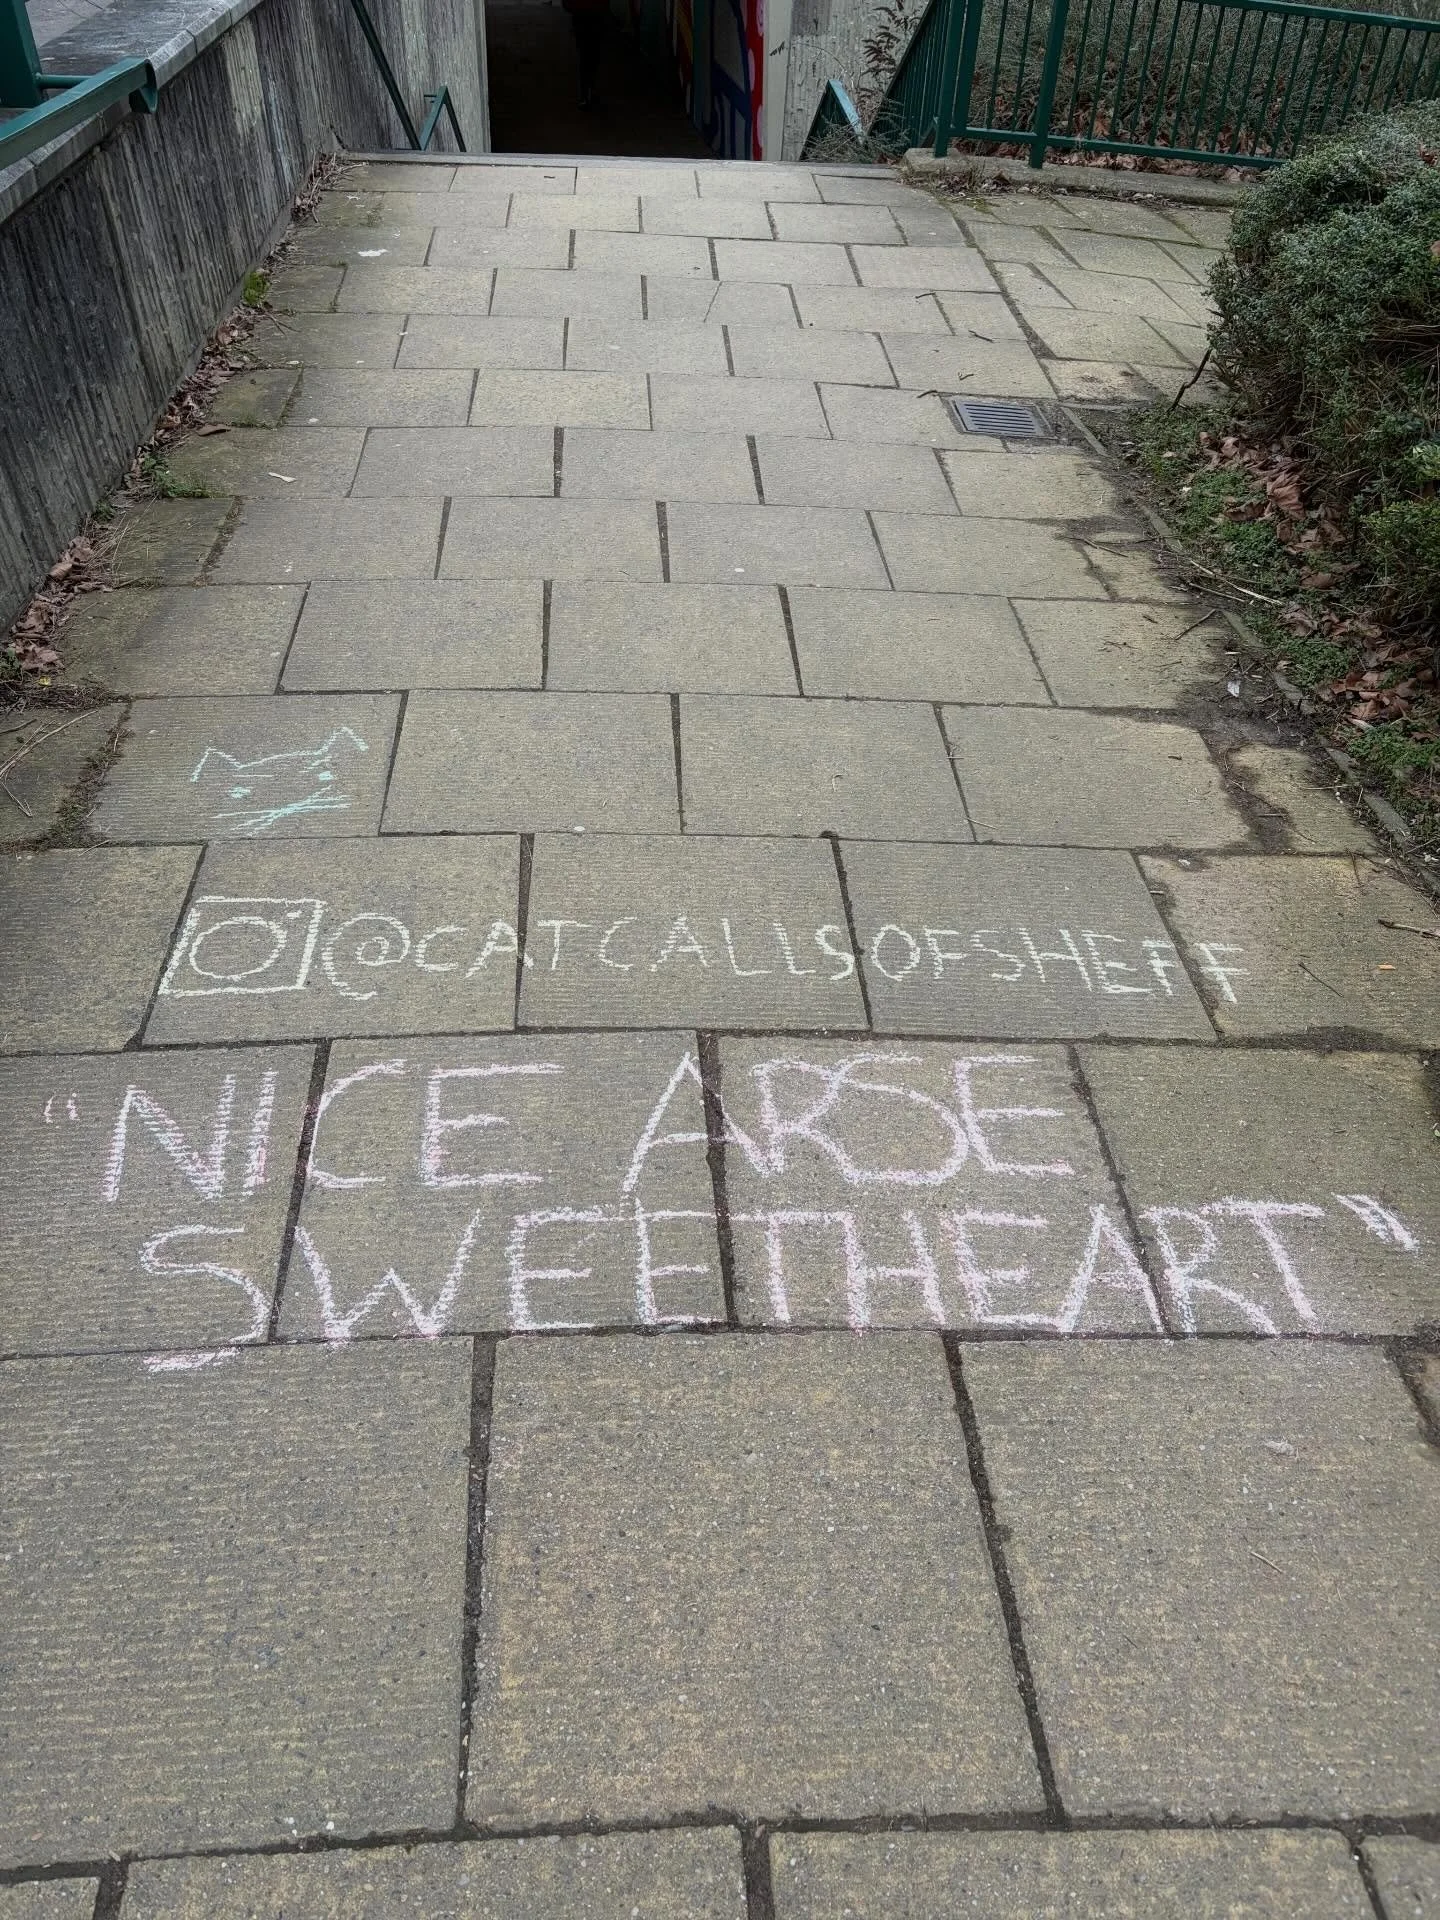 @CATCALLSOFSHEFF
"NICE ARSE
SWEETHEART"